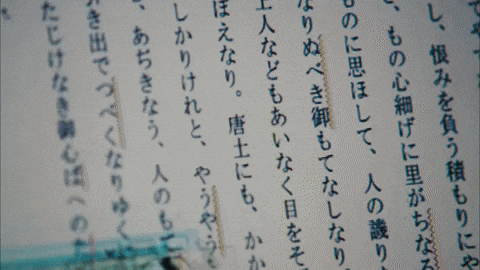 し、恨みを負う積もりにや
、もの心細げに里がちなる
ものに思ほして、人の譏り
なりぬべき御もてなしなり
上人などもあいなく目をそ
ぼえなり。唐土にも、かか
しかりけれと、やうやう
、あぢきなう、人のもて
き出でつべくなりゆく
たじけなき御心ばへのた